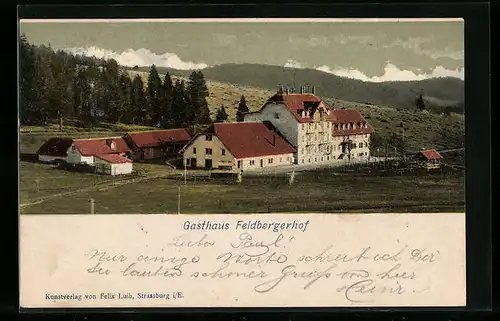 Gasthaus Feldbergerhof
Lieber Paul!
Nur einige Worte schreibt ich Dir
Sie lauten schönen Gruss von hier
Kunstverlag von Felix Luib, Strassburg i/E.